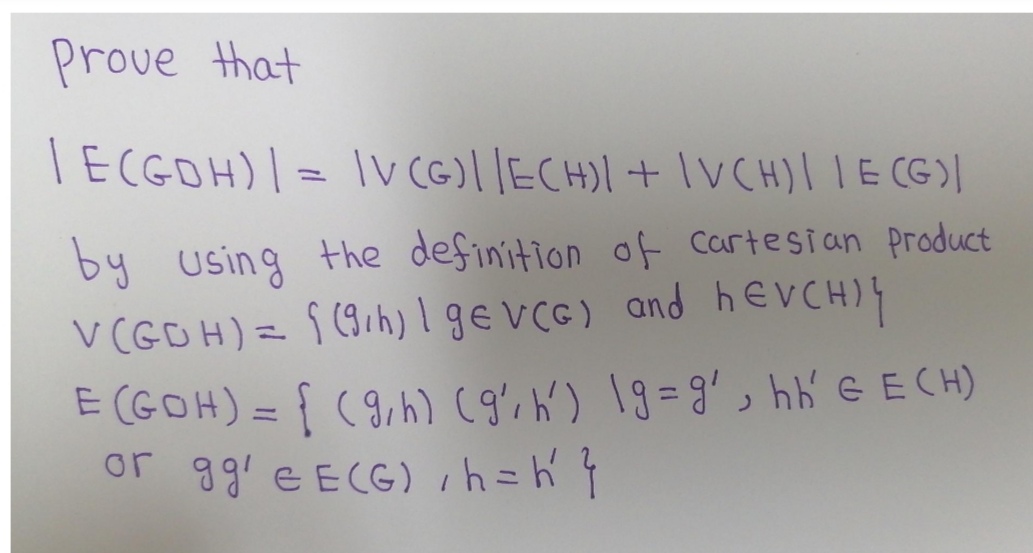 Prove that
|E(G□H)| = |V(G)||E(H)| + |V(H)| |E(G)|
by using the definition of cartesian product
V(G□H) = {(g,h) | g∈V(G) and h∈V(H)}
E(G□H) = { (g,h) (g',h') | g=g', hh' ∈ E(H)
or gg' ∈ E(G), h=h' }